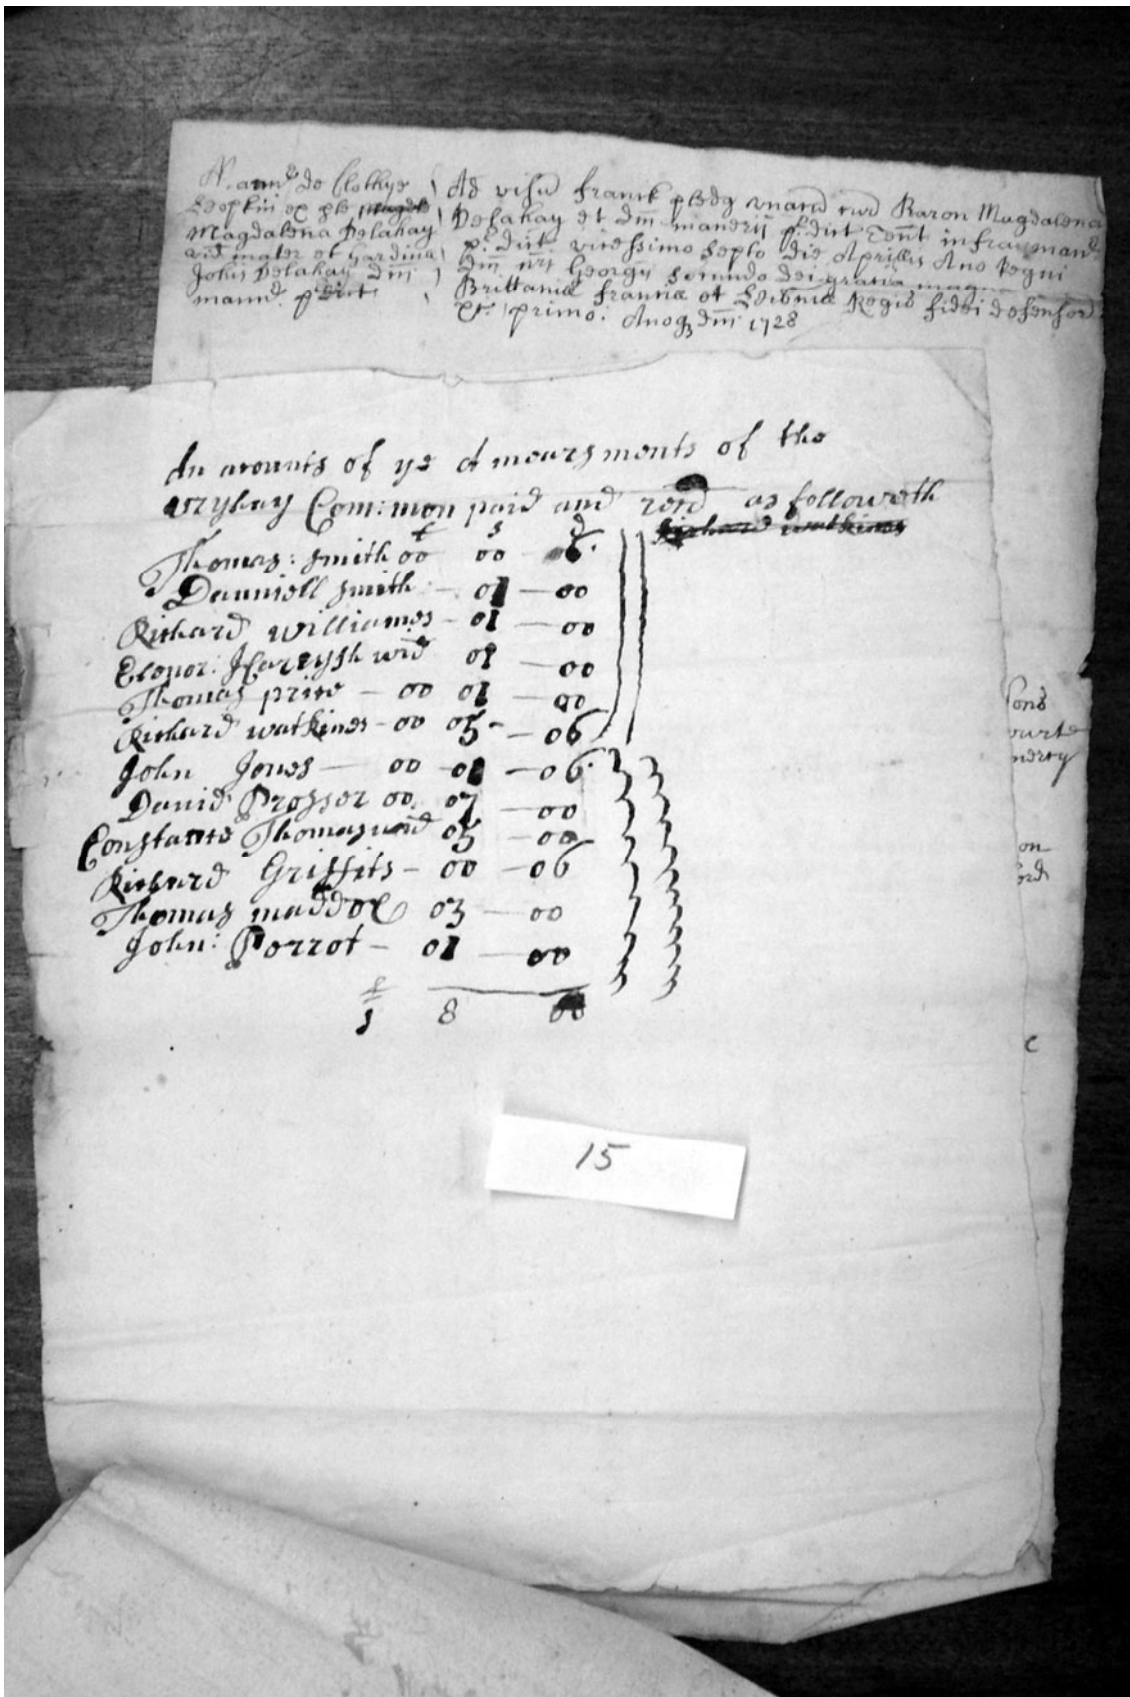 Mann^d de Clothye
Magdalena Delahay
vid mater et Gardina
Johis Delahay Dni
mannd pdict
Ad visu franck pledg unacu cur Baron Magdalena
Delahay et Dni manerii pdict Tent infra mand
p:dict vicessimo septo die Aprillis Ano Regni
Dni nri Georgii secundo dei gratia magne
Brittaniæ franciæ et Hibniæ Regis fidei defensor
&c: primo: Anoq Dni 1728
An acounts of ye Amearsments of the
Common paid and recd as followeth
£ s d
Richard watkines
Thomas: smith 00 00 06
Danniell smith - 01 - 00
Richard williames - 01 - 00
Elonor: wid 01 - 00
Thomas price - 00 01 - 00
Richard watkines - 00 05 - 06
John Jones - 00 - 01 - 06
David Prosser 00 07 - 00
Constance Thomas wid 05 - 00
Richard Griffits - 00 - 06
Thomas maddox 03 - 00
John: Porrot - 01 - 00
£
1 8 00
15
ourte
on
ord
c